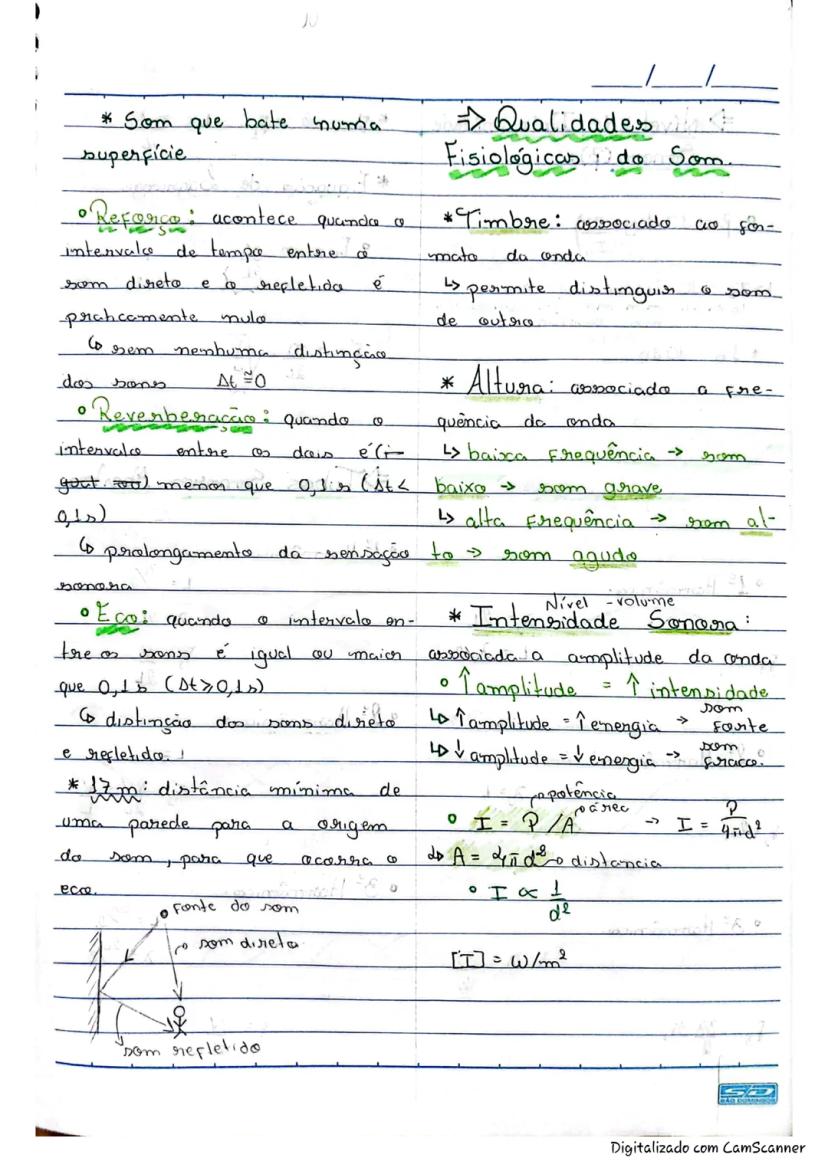 ___/___/___
* Som que bate numa
superfície
° Reforço: acontece quando o
intervalo de tempo entre o
som direto e o refletido é
praticamente nulo
↳ sem nenhuma distinção
dos sons Δt ≅ 0
° Reverberação: quando o
intervalo entre os dois é (i-
gual ou) menor que 0,1 s (Δt <
0,1s)
↳ prolongamento da sensação
sonora
° Eco: quando o intervalo en-
tre os sons é igual ou maior
que 0,1 s (Δt ≥ 0,1 s)
↳ distinção dos sons direto
e refletido.
* 17 m: distância mínima de
uma parede para a origem
do som, para que ocorra o
eco.
fonte do som
som direto
som refletido
⇒ Qualidades
Fisiológicas do Som.
* Timbre: associado ao for-
mato da onda
↳ permite distinguir o som
de outro
* Altura: associado a fre-
quência da onda
↳ baixa frequência → som
baixo → som grave
↳ alta frequência → som al-
to → som agudo
Nível - volume
* Intensidade Sonora:
associada a amplitude da onda
° ↑ amplitude = ↑ intensidade
↳ ↑ amplitude = ↑ energia → som forte
↳ ↓ amplitude = ↓ energia → som fraco.
potência
área
° I = P/A → I = P/4πd²
↳ A = 4πd² distancia
° I ∝ 1/d²
[I] = W/m²
SD
SÃO DOMINGOS
Digitalizado com CamScanner